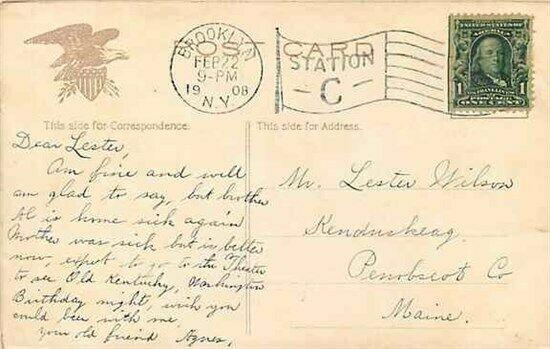 BROOKLYN
FEB 22
9-PM
1908
N.Y.
POST CARD
STATION
C
UNITED STATES
FRANKLIN
POSTAGE
1 ONE CENT 1
This side for Correspondence.
This side for Address.
Dear Lester,
Am fine and well
am glad to say, but brother
Al is home sick again
Mother was sick but is better
now, expect to go to the Theater
to see Old Kentucky, Washington
Birthday night, wish you
could bee with me.
your old friend Agnes,
Mr. Lester Wilson
Kenduskeag,
Penobscot Co
Maine.